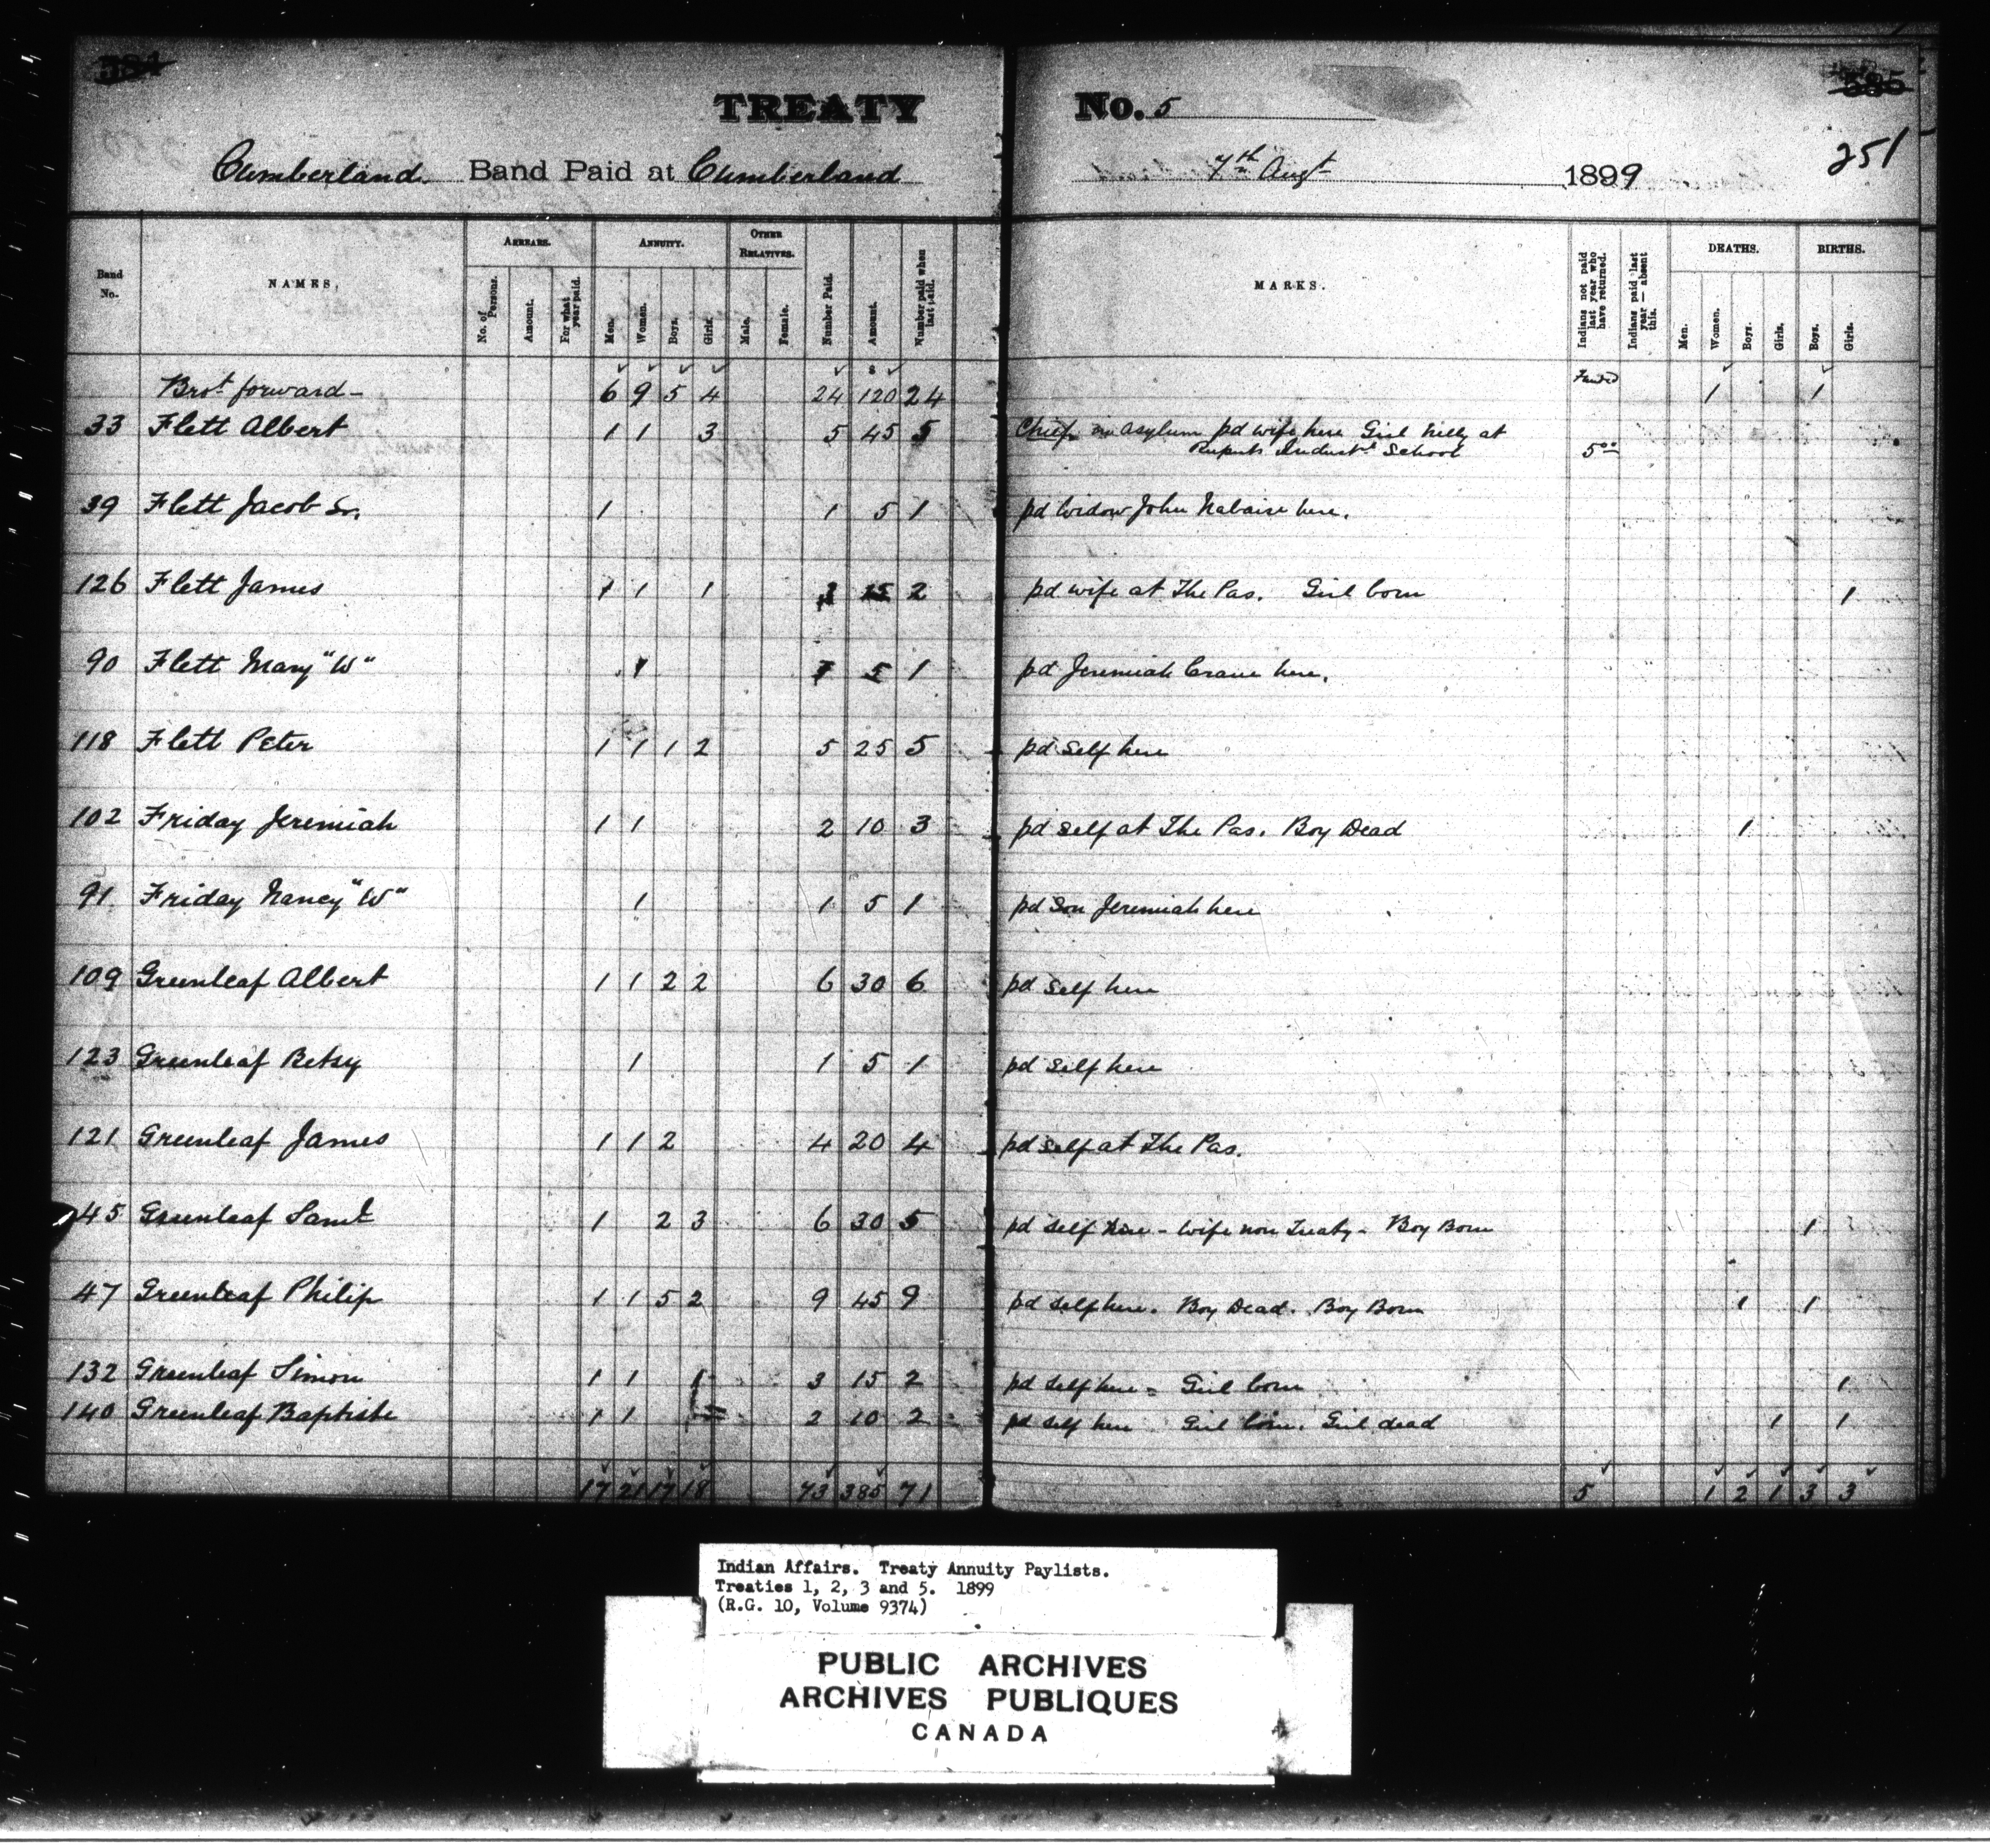 384
385
TREATY No. 5
251
Cumberland. Band Paid at Cumberland 7th Augt 1899
Band No. NAMES. ARREARS. ANNUITY. OTHER RELATIVES. Number Paid. Amount. Number paid when last paid. MARKS. Indians not paid last year who have returned. Indians paid last year — absent this. DEATHS. BIRTHS.
No. of Persons. Amount. For what year paid. Men. Women. Boys. Girls. Male. Female. Men. Women. Boys. Girls. Boys. Girls.
Brot forward — 6 9 5 4 24 $ 120 24 Funded 1 1
33 Flett Albert 1 1 3 5 45 5 Chief in asylum pd wife here Girl Nelly at
Ruperts Indust School 5 00
39 Flett Jacob Sr. 1 1 5 1 pd Widow John Nabaise here.
126 Flett James 1 1 1 3 15 2 pd wife at The Pas. Girl born 1
90 Flett Mary "W" 1 1 5 1 pd Jeremiah Crane here.
118 Flett Peter 1 1 1 2 5 25 5 pd self here
102 Friday Jeremiah 1 1 2 10 3 pd self at The Pas. Boy Dead 1
91 Friday Nancy "W" 1 1 5 1 pd Son Jeremiah here
109 Greenleaf Albert 1 1 2 2 6 30 6 pd self here
123 Greenleaf Betsy 1 1 5 1 pd self here
121 Greenleaf James 1 1 2 4 20 4 pd self at The Pas.
45 Greenleaf Saml 1 2 3 6 30 5 pd self here - wife non Treaty - Boy Born 1
47 Greenleaf Philip 1 1 5 2 9 45 9 pd self here. Boy Dead. Boy Born 1 1
132 Greenleaf Simon 1 1 1 3 15 2 pd self here - Girl born 1
140 Greenleaf Baptiste 1 1 2 10 2 pd self here Girl born. Girl dead 1 1
17 21 17 18 73 385 71 5 1 2 1 3 3
Indian Affairs. Treaty Annuity Paylists.
Treaties 1, 2, 3 and 5. 1899
(R.G. 10, Volume 9374)
PUBLIC ARCHIVES
ARCHIVES PUBLIQUES
CANADA